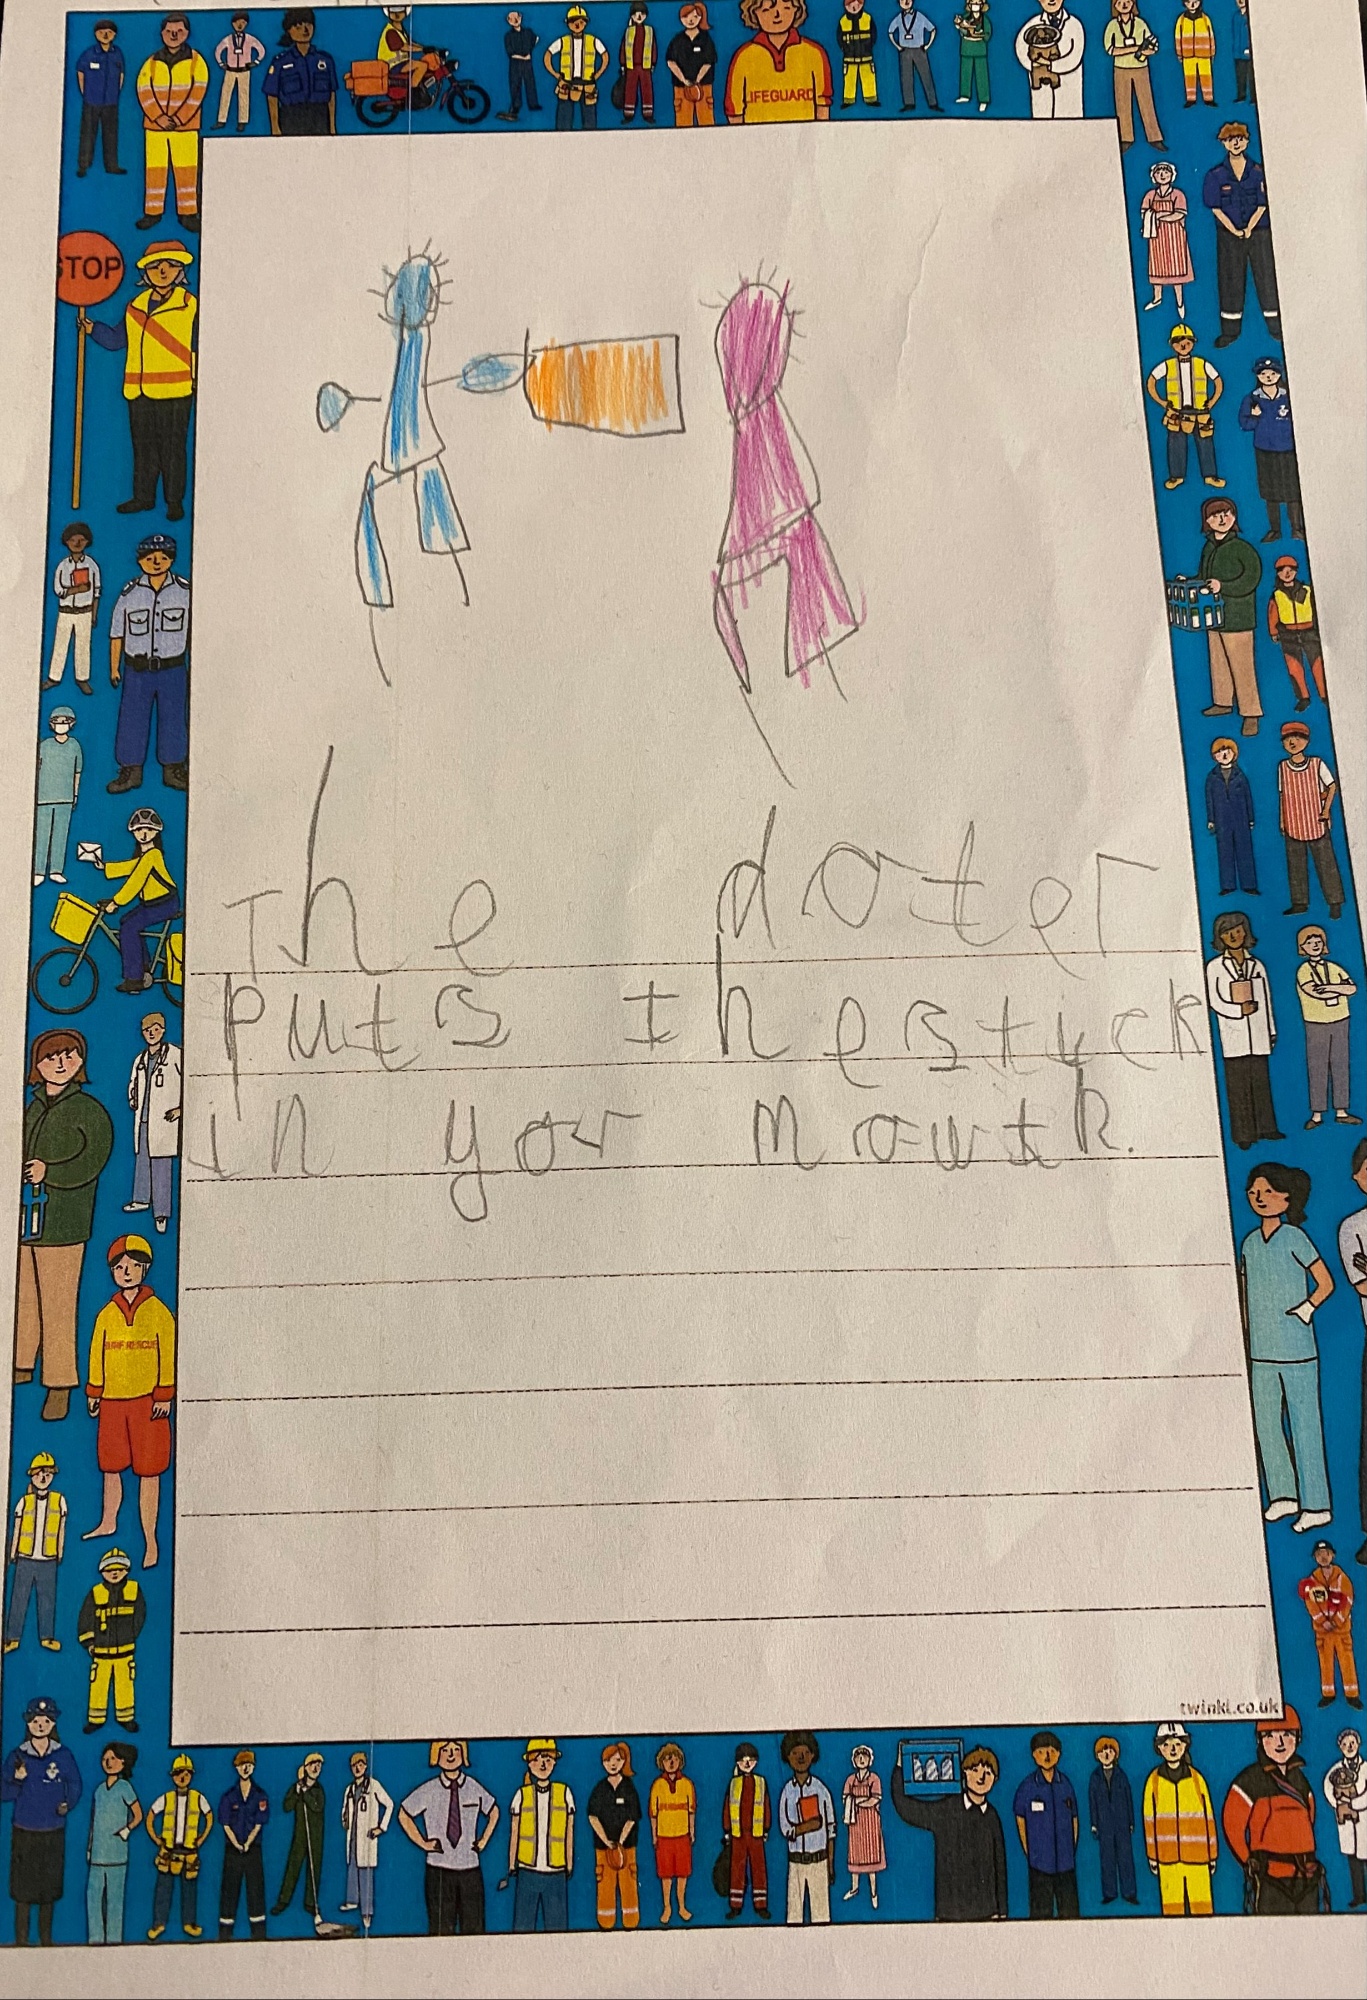 LIFEGUARD
STOP
The doter
puts the stick
in yor mowth.
SURF RESCUE
twinkl.co.uk